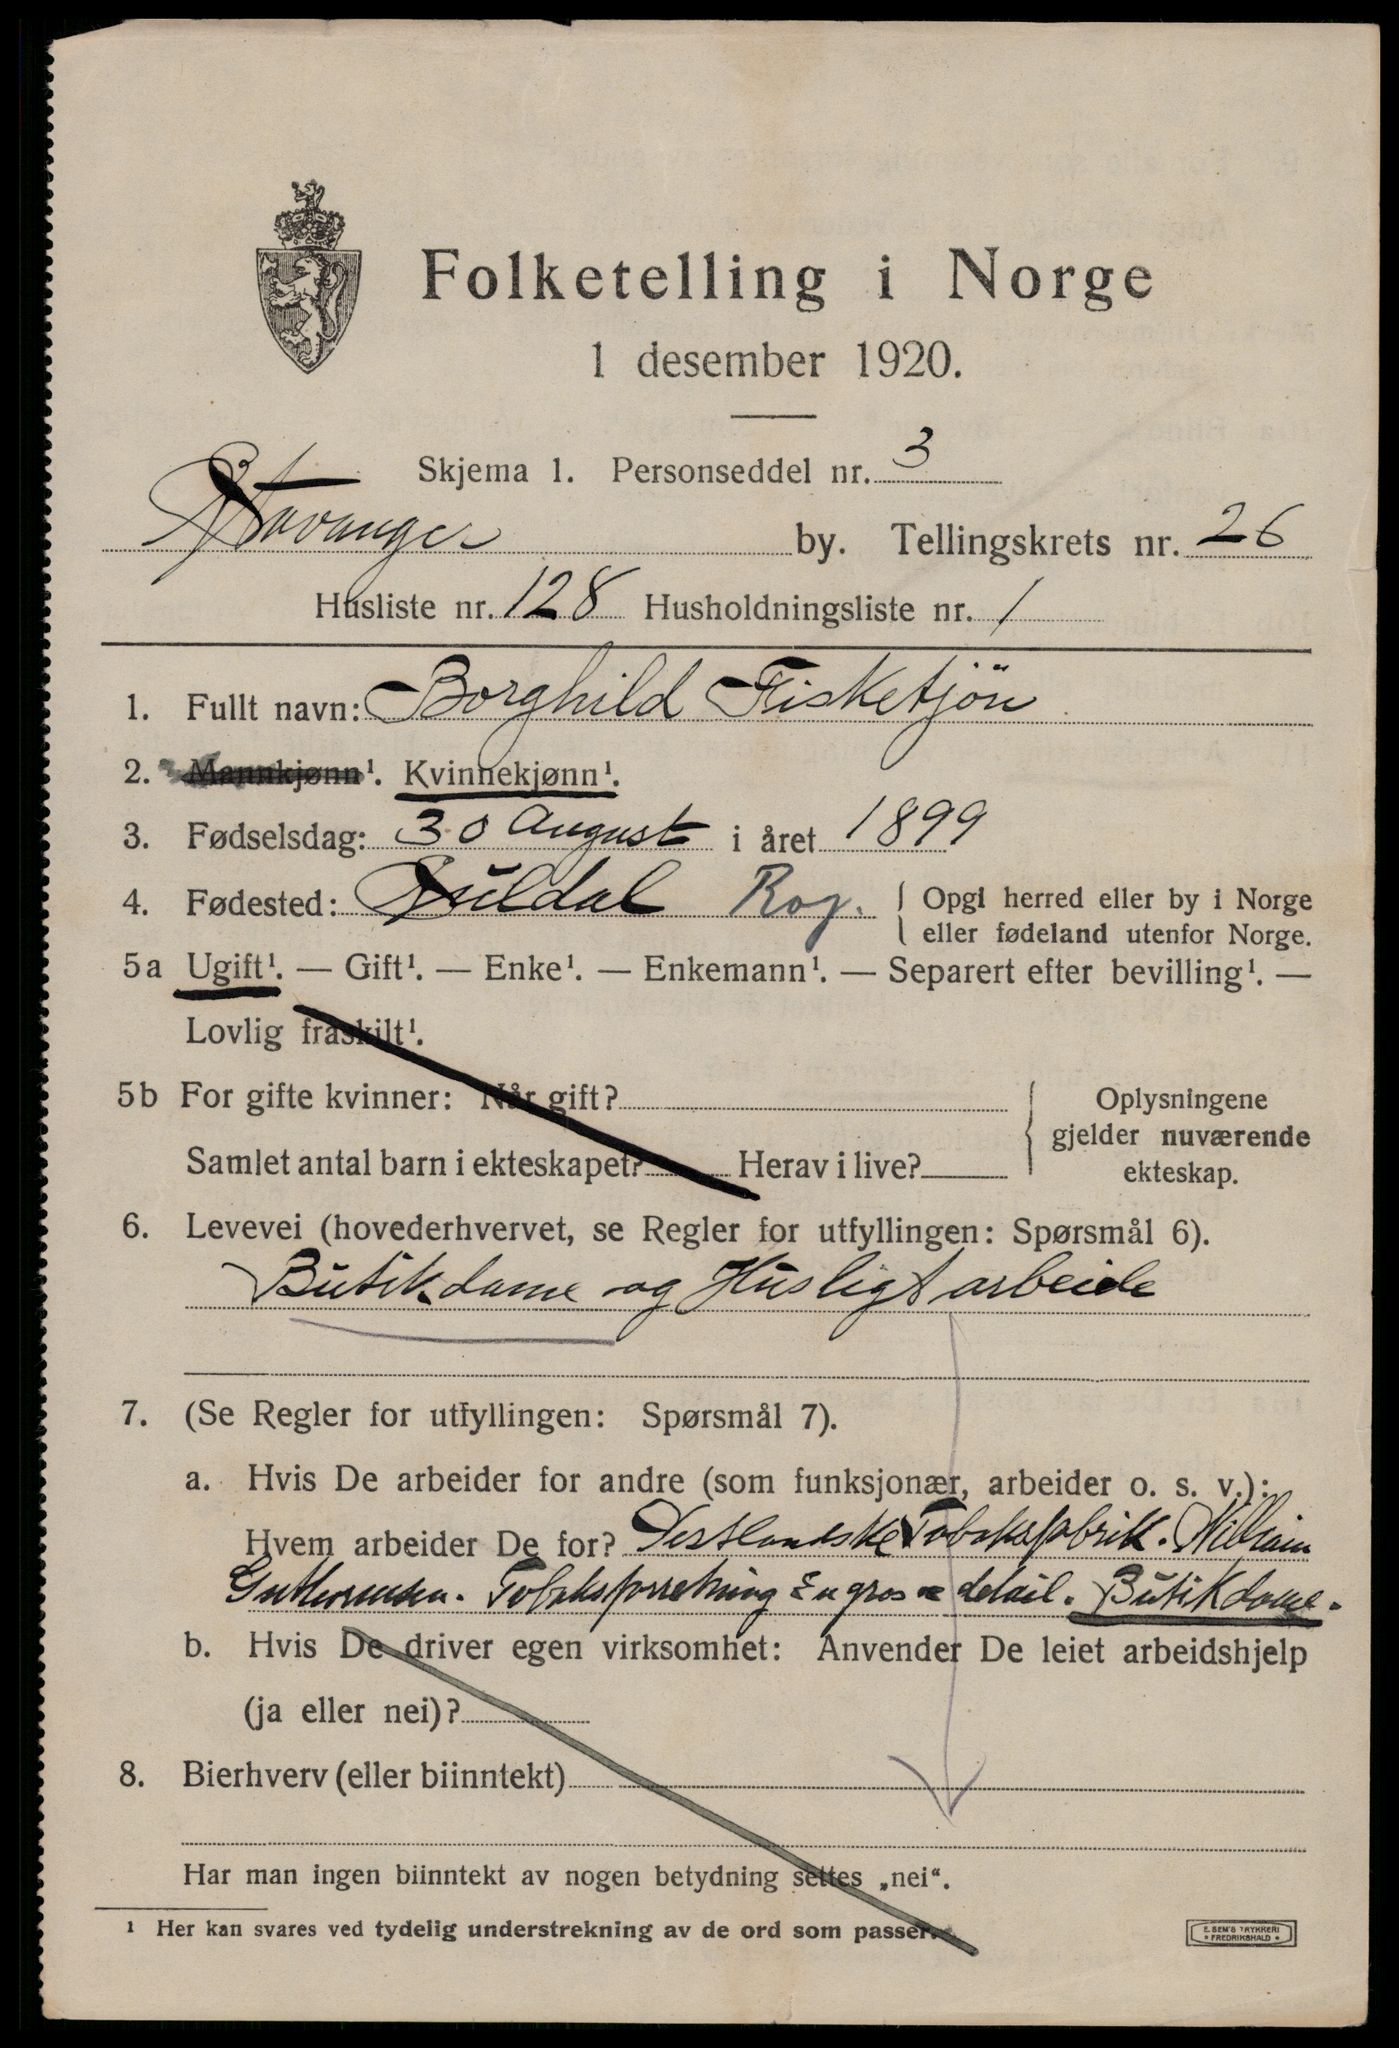 Folketelling i Norge
1 desember 1920.
Skjema 1. Personseddel nr. 3
Stavanger by. Tellingskrets nr. 26
Husliste nr. 128 Husholdningsliste nr. 1
1. Fullt navn: Borghild Fisketjön
2. Mannkjønn¹. Kvinnekjønn¹.
3. Fødselsdag: 30 August i året 1899
4. Fødested: Suldal Rog. { Opgi herred eller by i Norge
eller fødeland utenfor Norge.
5a Ugift¹. — Gift¹. — Enke¹. — Enkemann¹. — Separert efter bevilling¹. —
Lovlig fraskilt¹.
5b For gifte kvinner: Når gift? { Oplysningene
gjelder nuværende
Samlet antal barn i ekteskapet? Herav i live? ekteskap.
6. Levevei (hovederhvervet, se Regler for utfyllingen: Spørsmål 6).
Butikdame og Husligt arbeide
7. (Se Regler for utfyllingen: Spørsmål 7).
a. Hvis De arbeider for andre (som funksjonær, arbeider o. s. v.):
Hvem arbeider De for? Vestlandske Tobaksfabrik. William
Guttormsen. Tobaksforretning En gros &amp; detail. Butikdame.
b. Hvis De driver egen virksomhet: Anvender De leiet arbeidshjelp
(ja eller nei)?
8. Bierhverv (eller biinntekt)
Har man ingen biinntekt av nogen betydning settes „nei“.
¹ Her kan svares ved tydelig understrekning av de ord som passer.
E. SEM'S TRYKKERI
* FREDRIKSHALD *